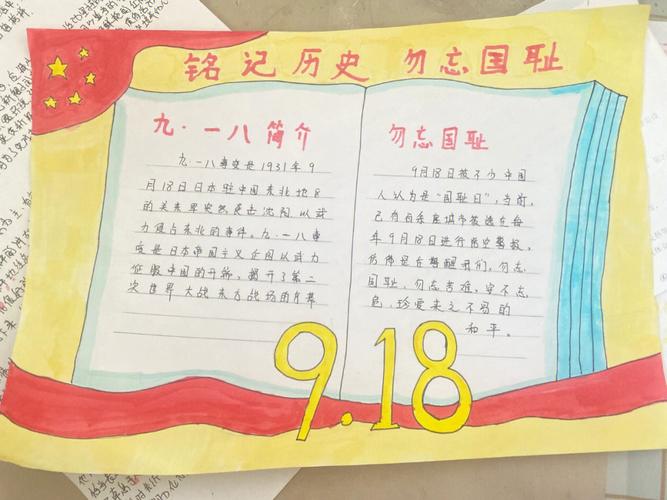 铭记历史 勿忘国耻
九·一八简介
九·一八事变是1931年9
月18日日本驻中国东北地区
的关东军突然袭击沈阳,以武
力侵占东北的事件。九·一八事
变是日本帝国主义企图以武力
征服中国的开端,揭开了第二
次世界大战东方战场的序幕
勿忘国耻
9月18日被不少中国
人认为是“国耻日”,当前,
已有百余座城市被选在每
年9月18日进行警报,
在警醒我们,勿忘
国耻,勿忘苦难,安不忘
危,珍爱来之不易的
和平。
9.18